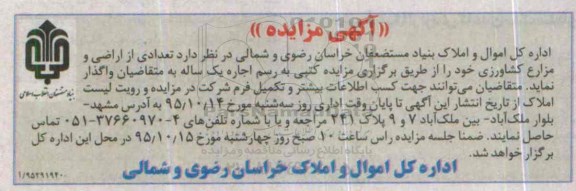 ((آگهی مزایده))
اداره کل اموال و املاک بنیاد مستضعفان خراسان رضوی و شمالی در نظر دارد تعدادی از اراضی و
مزارع کشاورزی خود را از طریق برگزاری مزایده کتبی به رسم اجاره یک ساله به متقاضیان واگذار
نماید. متقاضیان می‌توانند جهت کسب اطلاعات بیشتر و تکمیل فرم شرکت در مزایده و رویت لیست
املاک از تاریخ انتشار این آگهی تا پایان وقت اداری روز سه‌شنبه مورخ ۹۵/۱۰/۱۴ به آدرس مشهد-
بلوار ملک‌آباد- بین ملک‌آباد ۷ و ۹ پلاک ۲۴۱ مراجعه و یا با شماره تلفن‌های ۴-۳۷۶۶۰۹۷۰-۰۵۱ تماس
حاصل نمایند. ضمنا جلسه مزایده راس ساعت ۱۰ صبح روز چهارشنبه مورخ ۹۵/۱۰/۱۵ در محل این اداره کل
برگزار خواهد شد.
اداره کل اموال و املاک خراسان رضوی و شمالی
بنیاد مستضعفان انقلاب اسلامی
۱/۹۵۲۹۱۹۲۰۰